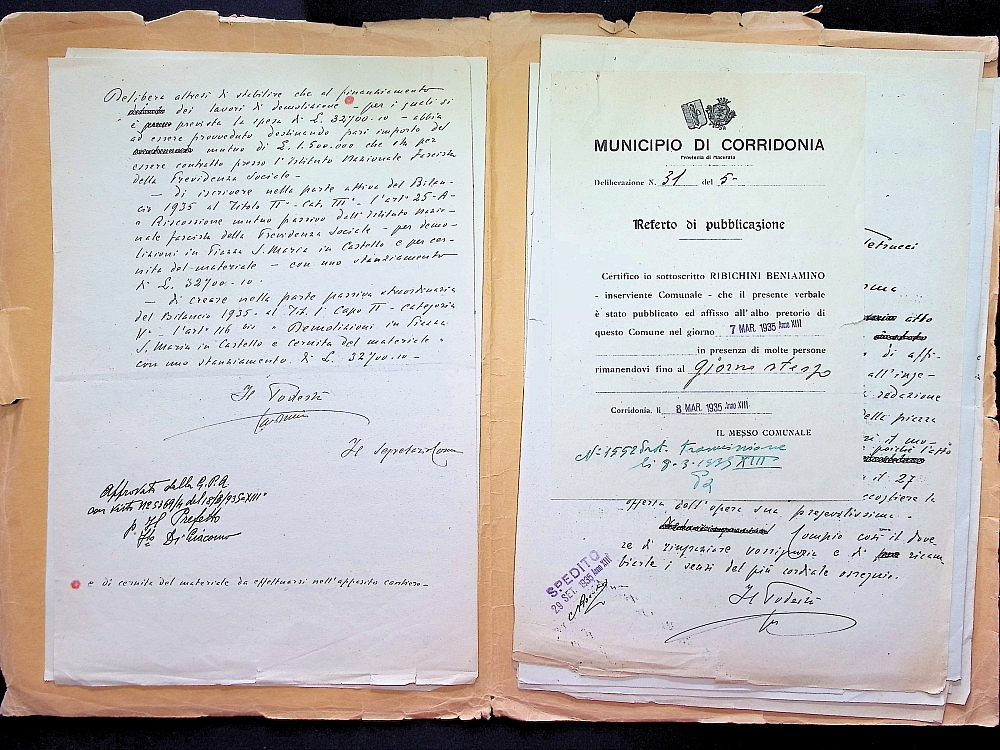 Delibera altresì di stabilire che al finanziamento
dei lavori di demolizione - per i quali si
è prevista la spesa di £. 32700.10 - abbia
ad essere provveduto destinando pari importo del
mutuo di £. 1.500.000 che sta per
essere contratto presso l'Istituto Nazionale fascista
della Previdenza Sociale -
- di iscrivere nella parte attiva del Bilan-
cio 1935 al Titolo IIº - Cat. IIIª - l'artº 25-A-
" Riscossione mutuo passivo dall'Istituto Nazio-
nale fascista della Previdenza Sociale - per demo-
lizioni in Piazza S. Maria in Castello e per cer-
nita del materiale - con uno stanziamento
di £. 32700.10 -
- di creare nella parte passiva straordinaria
del Bilancio 1935 - al Tit. Iº Capo II - Categoria
Vª - l'artº 116 bis " Demolizioni in Piazza
S. Maria in Castello e cernita del materiale "
con uno stanziamento di £. 32700.10 -
Il Podestà
Il Segretario Com.
Approvata dalla G.P.A
con visto Nº
p. Il Prefetto
Di Giacomo
e di cernita del materiale da effettuarsi nell'apposito cantiere -
MUNICIPIO DI CORRIDONIA
Provincia di Macerata
Deliberazione N. 31 del 5-
Referto di pubblicazione
Certifico io sottoscritto RIBICHINI BENIAMINO
- inserviente Comunale - che il presente verbale
è stato pubblicato ed affisso all'albo pretorio di
questo Comune nel giorno 7 MAR. 1935 Anno XIII
in presenza di molte persone
rimanendovi fino al giorno stesso
Corridonia, li 8 MAR. 1935 Anno XIII
IL MESSO COMUNALE
Nº 1552 Prot. Trasmissione
li 8-3-1935 XIII
Petrucci
atto
di affi-
all'inge-
redazione
della piazza
il mo-
poichè l'atto
il 27
accogliere la
offerta dell'opera sua pregevolissima -
Compio così il dove
re di ringraziare vossignoria e di ricam
biarle i sensi del più cordiale ossequio.
Il Podestà
SPEDITO
29 SET. 1935 Anno XIII